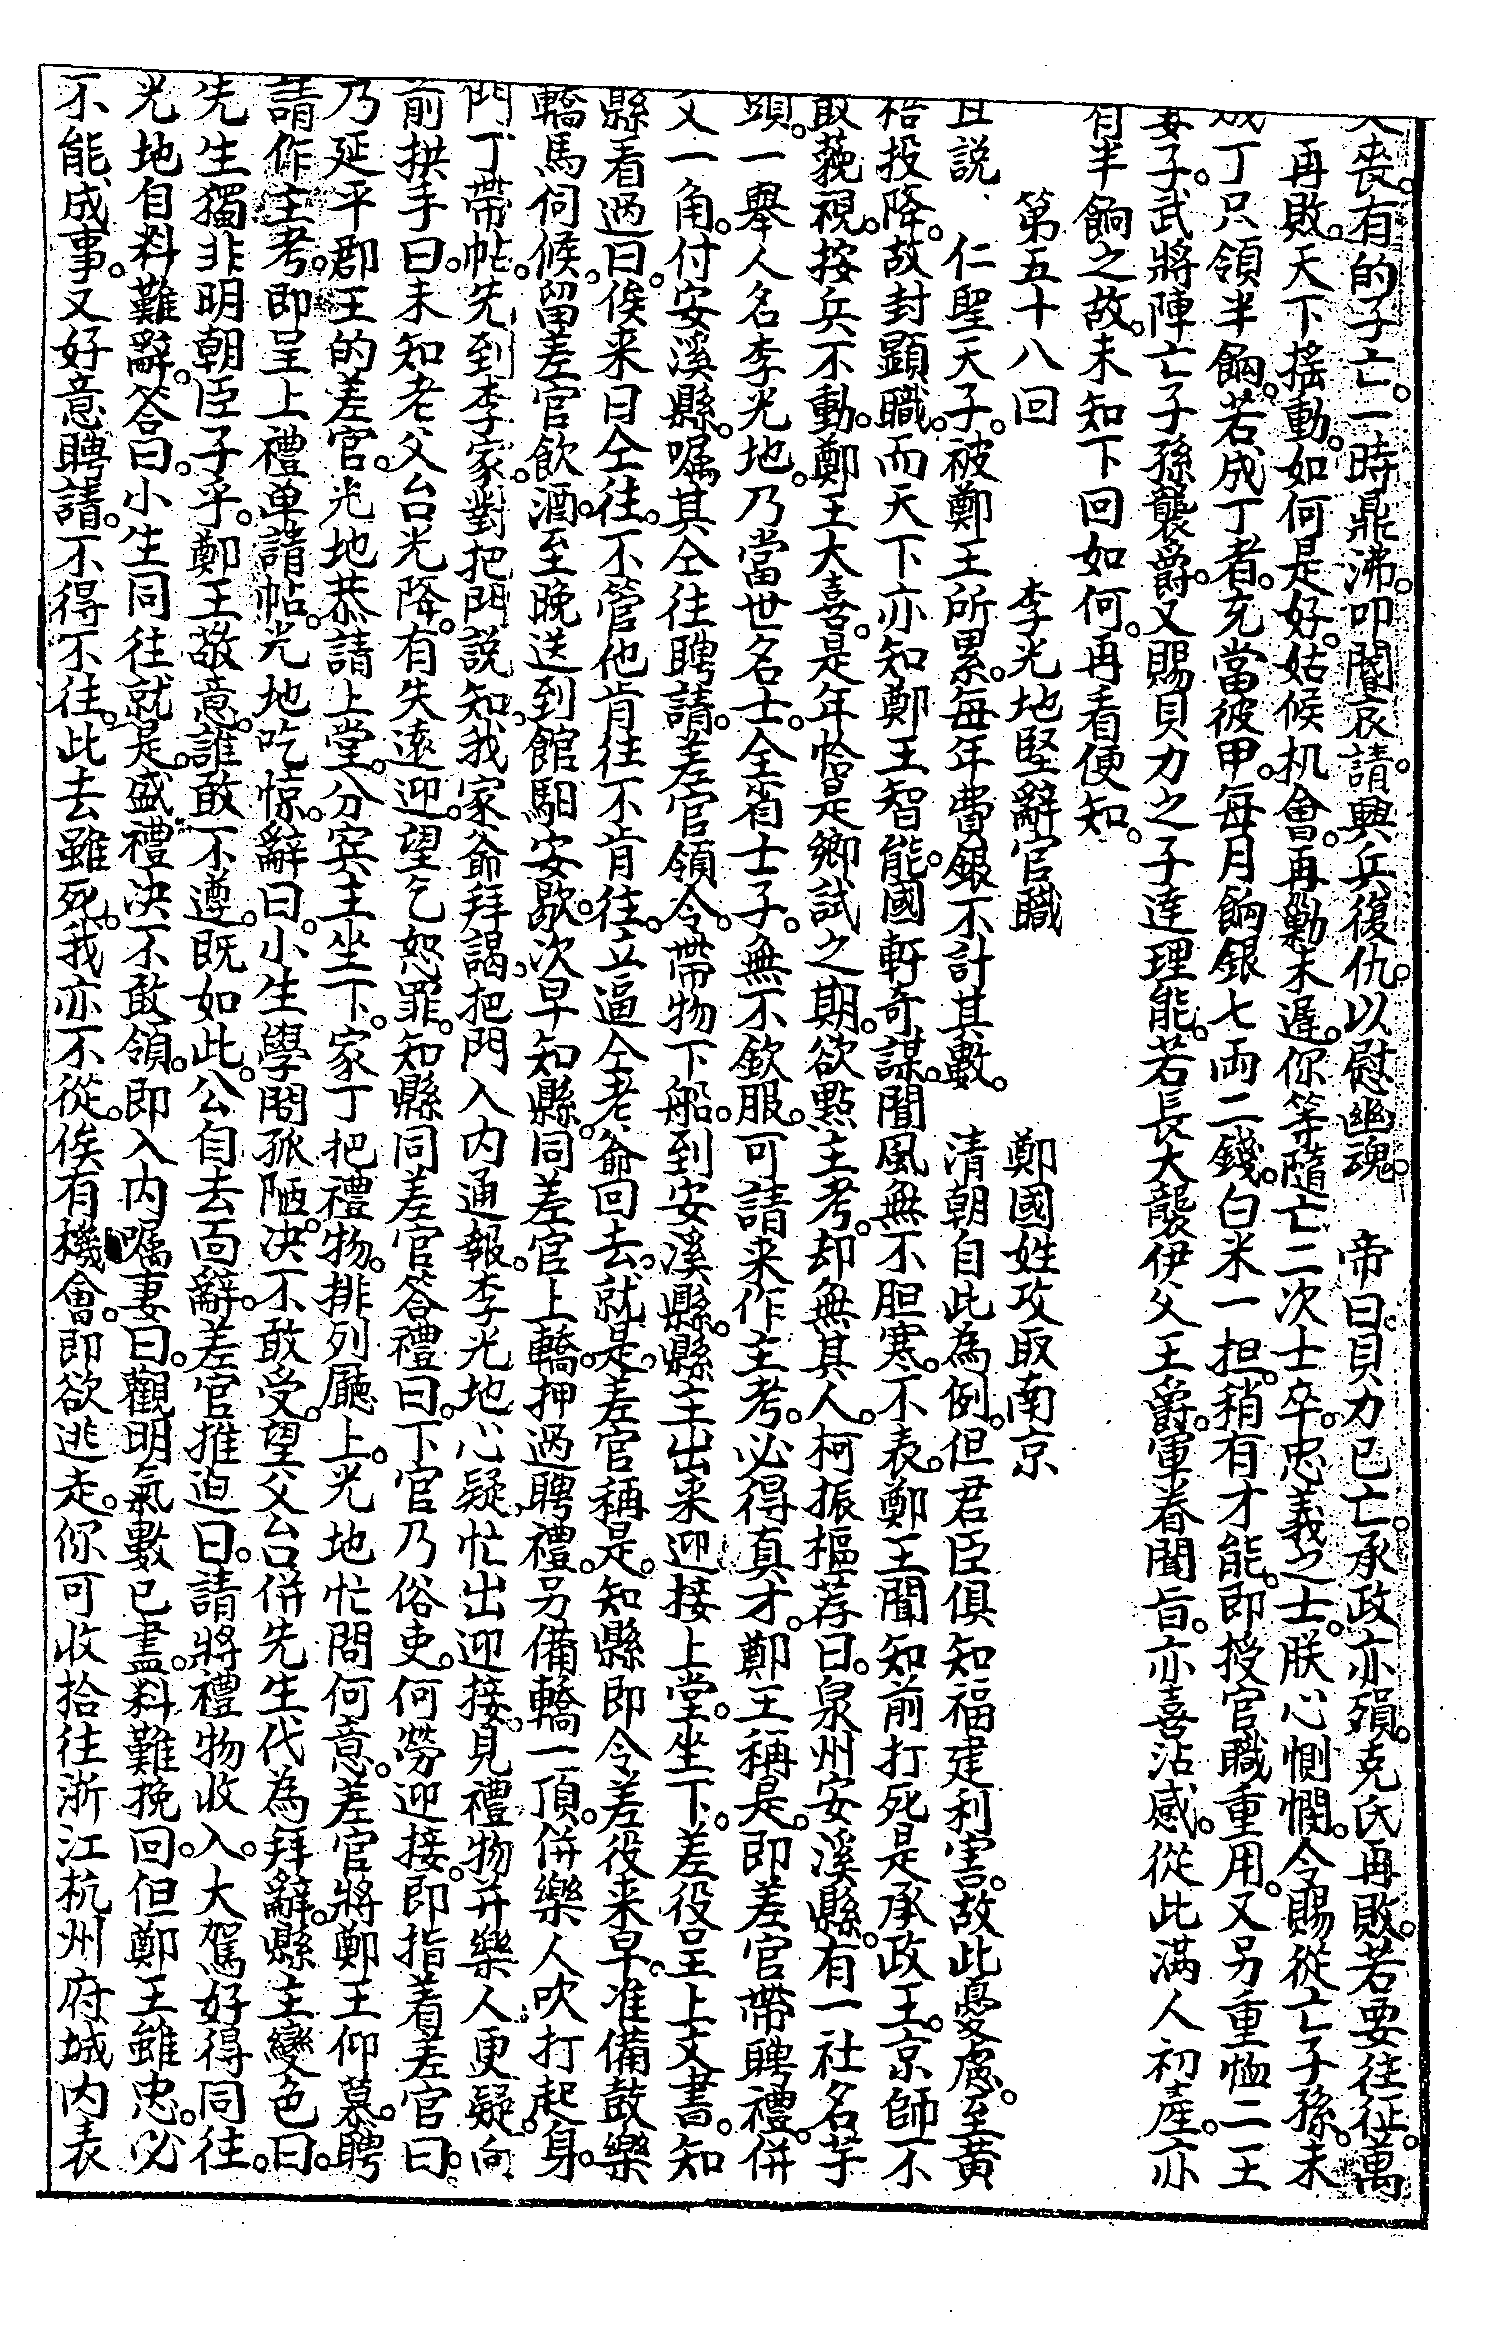 喪。有的子亡。一時鼎沸。叩閽哀請。興兵復仇。以慰幽魂。 帝曰。貝力已亡。承政亦殞。克氏再敗。若要往征。萬
再敗。天下搖動。如何是好。姑候机會。再勦未遲。你等隨亡二次士卒。忠義之士。朕心惻憫。令賜從亡子孫。未
成丁只領半餉。若成丁者。充當彼甲。每月餉銀七両二錢。白米一担。稍有才能。即授官職重用。又另重恤二王
妻子。武將陣亡子孫襲爵。又賜貝力之子達理能。若長大襲伊父王爵。軍眷聞旨。亦喜沾感。從此滿人初產。亦
有半餉之故。未知下回如何。再看便知。
第五十八回 李光地堅辭官職 鄭國姓攻取南京
且説 仁聖天子。被鄭王所累。每年費銀不計其數。 清朝自此為例。但君臣俱知福建利害。故此憂慮。至黃
梧投降。故封顯職。而天下亦知鄭王智能。國軒奇謀。聞風無不胆寒。不表。鄭王聞知前打死是承政王。京師不
取藐視。按兵不動。鄭王大喜。是年恰是鄉試之期。欲點主考。却無其人。柯振樞荐曰。泉州安溪縣。有一社名芋
頭。一舉人名李光地。乃當世名士。全省士子。無不欽服。可請来作主考。必得真才。鄭王稱是。即差官帶聘禮。併
文一角。付安溪縣。囑其仝往聘請。差官領令。帶物下船。到安溪縣。縣主出来迎接上堂。坐下。差役呈上文書。知
縣看過曰。俟来日仝往。不管他肯往不肯往。立逼仝老爺回去。就是。差官稱是。知縣即令差役来早。准備鼓樂
轎馬伺候。留差官飲酒。至晚送到館馹安歇。次早知縣。同差官上轎。押過聘禮。另備轎一頂。併樂人吹打起身。
門丁帶帖。先到李家。對把門説知。我家爺拜謁。把門入内通報。李光地心疑。忙出迎接。見禮物并樂人。更疑。向
前拱手曰。未知老父台光降。有失遠迎。望乞恕罪。知縣同差官答禮曰。下官乃俗吏。何勞迎接。即指着差官曰。
乃延平郡王的差官。光地恭請上堂。分賓主坐下。家丁把禮物。排列廳上。光地忙問何意。差官將鄭王仰慕。聘
請作主考。即呈上禮单請帖。光地吃惊。辭曰。小生學問孤陋。决不敢受。望父台併先生代為拜辭。縣主變色曰。
先生獨非明朝臣子乎。鄭王敬意。誰敢不遵。既如此。公自去面辭。差官推迫曰。請將禮物收入。大駕好得同往。
光地自料難辭。答曰。小生同往就是。盛禮决不敢領。即入内囑妻曰。觀明氣數已盡。料難挽回。但鄭王雖忠。必
不能成事。又好意聘請。不得不往。此去雖死。我亦不從。俟有機會。即欲逃走。你可收拾往浙江杭州府城内表